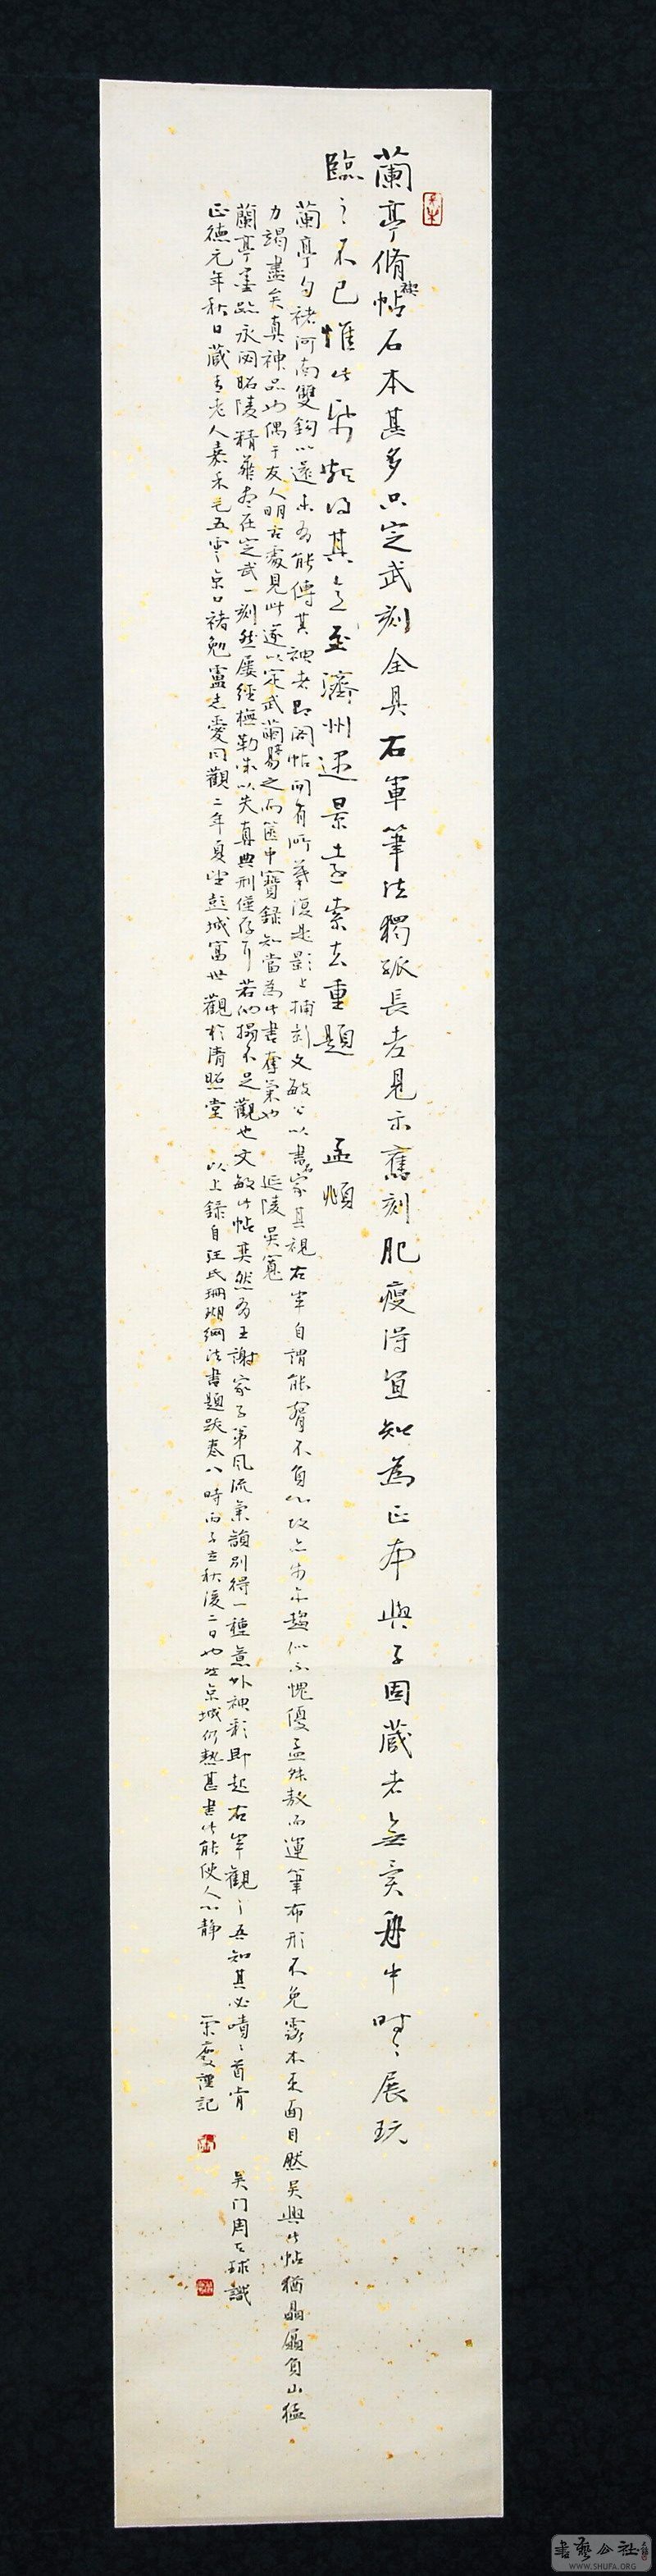 蘭亭脩禊帖石本甚多只定武刻全具右軍筆法獨孤長老見示舊刻肥瘦得宜知為正本與子固藏者無異舟中時々展玩
臨之不已惟此紙 其 至濟州遇景遠索去重題 孟頫
蘭亭自褚河南雙鉤以還未有能傳其神者即閣帖間有所摹復是影上捕刻文敏公以書名家其視右軍自謂能 不負 故點 亦趨似不愧優孟孫敖而運筆布形不免露本色面目然吳興此帖猶贔屭負山猛
力竭盡矣真神品也偶于友人明古處見此遂以定武蘭亭易之而篋中寶錄知當為此書奪氣也 延陵吳寬
蘭亭墨跡永閟昭陵精華盡在定武一刻然屢經橅勒 以失真典刑僅存耳若 搨不足觀也文敏此帖奕然有王謝家子弟風流氣韻別得一種意外神彩即起右軍觀之吾知其必嘖々首肯 吳門周天球識
正德元年秋日藏 老人嘉禾 五雲京口褚勉 志愛同觀二年夏 彭城富世觀於清照堂 以上錄自汪氏珊瑚網法書題跋卷八時丙子立秋後二日也 京城仍熱甚書此能使人心靜 榮慶謹記
書藝公社
WWW.SHUFA.ORG